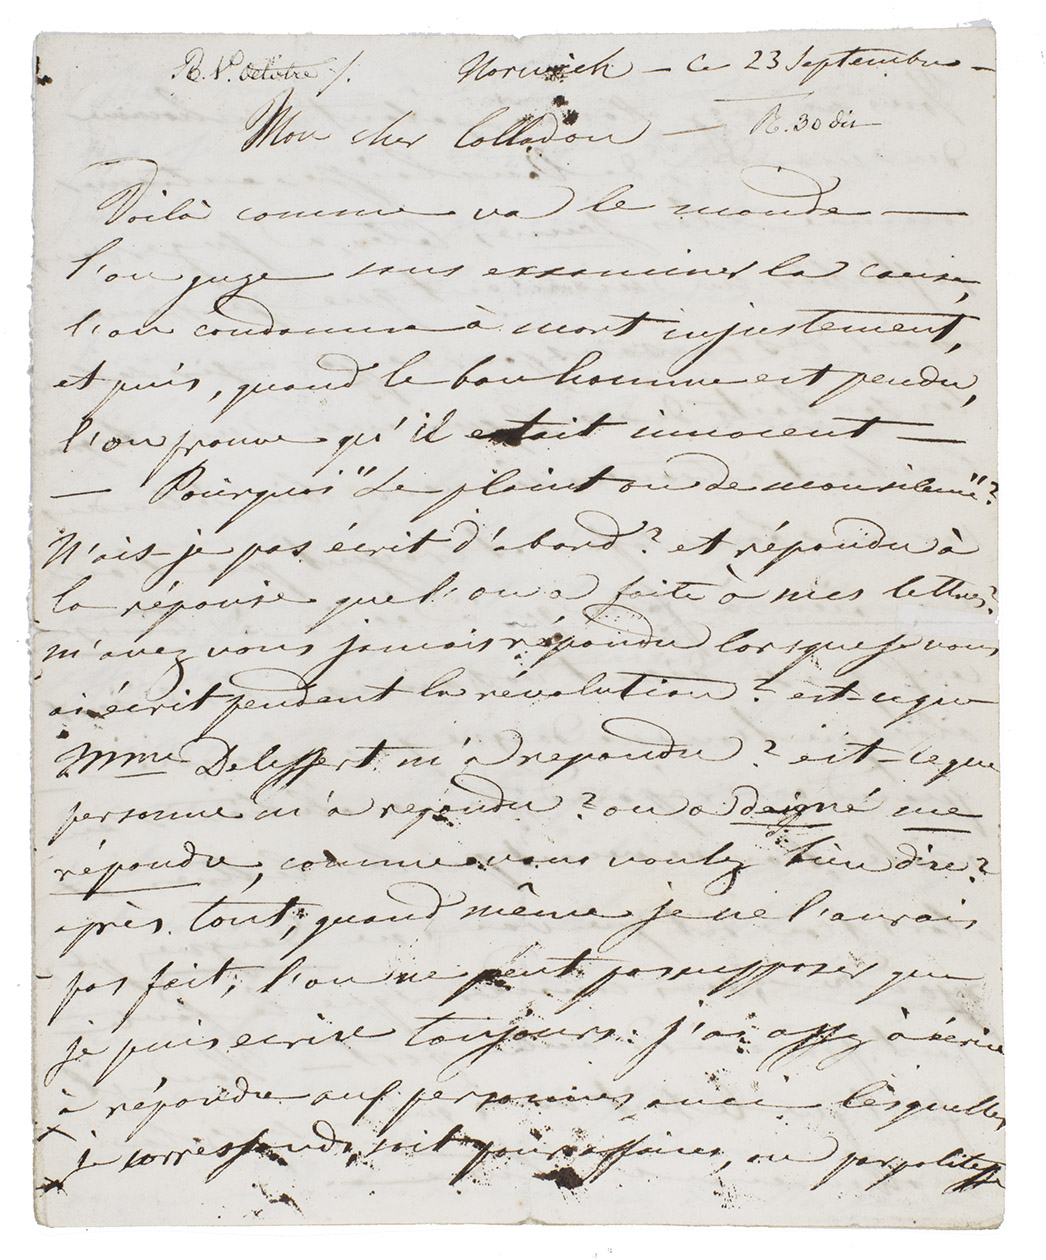 R. 1er Octobre /. Norwich — Ce 23 Septembre —
Mon cher Colladon — R. 30 dit
Voilà comme va le monde —
l'on juge sans examiner la cause,
l'on condamne à mort injustement,
et puis, quand le bonhomme est pendu,
l'on prouve qu'il etait innocent —
— Pourquoi "se plaint on de mon silence"?
N'ais-je pas écrit d'abord? et répondu à
la réponse que l'on a faite à mes lettres?
m'avez vous jamais répondu lorsque je vous
ai écrit pendant la révolution? est-ce que
Mme Delessert m'a repondu? est-ce que
personne m'a repondu? ou a deigné me
répondre, comme vous voulez bien dire?
après tout, quand même je ne l'aurais
pas fait, l'on ne peut pas supposer que
je puis ecrire toujours: j'ai assez à écrire
à répondre aux personnes avec lesquelles
je corresponds, soit pour affaires, ou par politesse